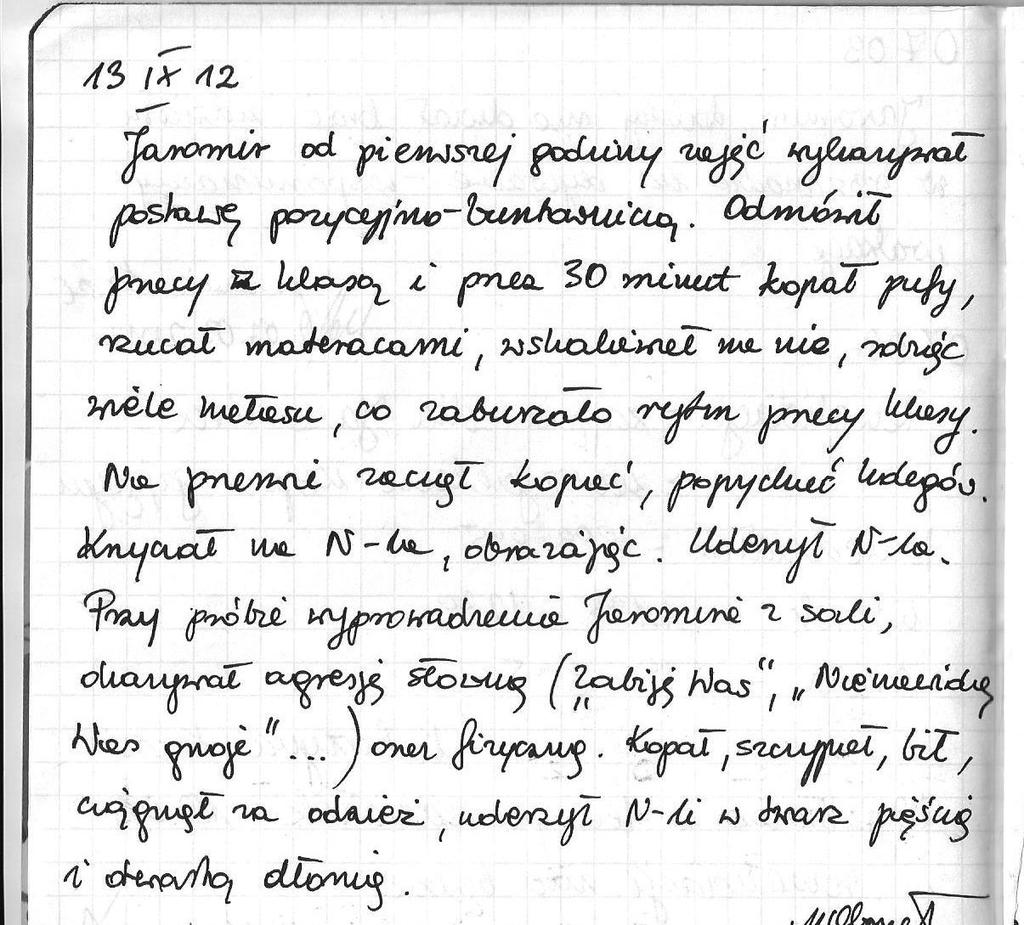 13 IX 12
Jaromir od pierwszej godziny zajęć wykazywał
postawę pozycyjno-buntowniczą. Odmówił
pracy z klasą i przez 30 minut kopał pufy,
rzucał materacami, wskakiwał na nie, robiąc
wiele hałasu, co zaburzało rytm pracy klasy.
Na przerwie zaczął kopać, popychać kolegów.
Krzyczał na N-la, obrażając. Uderzył N-la.
Przy próbie wyprowadzenia Jaromira z sali,
okazywał agresję słowną („Zabiję Was", „Nienawidzę
Was gnoje"...) oraz fizyczną. Kopał, szczypał, bił,
ciągnął za odzież, uderzył N-li w twarz pięścią
i otwartą dłonią.